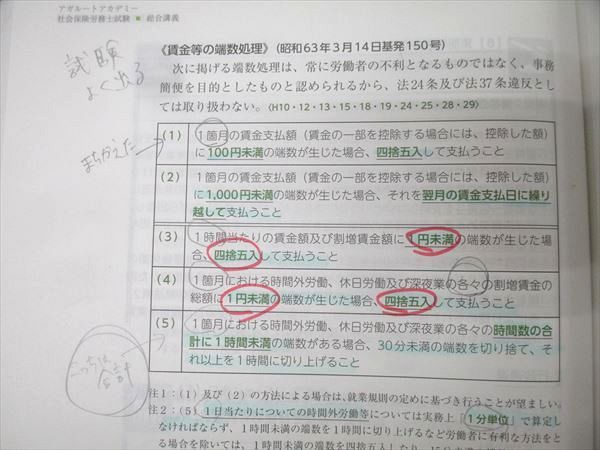 アガルートアカデミー
社会保険労務士試験 ■ 総合講義
試験
よく出る
《賃金等の端数処理》(昭和63年3月14日基発150号)
次に掲げる端数処理は、常に労働者の不利となるものではなく、事務
簡便を目的としたものと認められるから、法24条及び法37条違反とし
ては取り扱わない。〈H10・12・13・15・18・19・24・25・28・29〉
まちがえた
(1) 1箇月の賃金支払額(賃金の一部を控除する場合には、控除した額)
に100円未満の端数が生じた場合、四捨五入して支払うこと
(2) 1箇月の賃金支払額(賃金の一部を控除する場合には、控除した額)
に1,000円未満の端数が生じた場合、それを翌月の賃金支払日に繰り
越して支払うこと
(3) 1時間当たりの賃金額及び割増賃金額に1円未満の端数が生じた場
合、四捨五入して支払うこと
(4) 1箇月における時間外労働、休日労働及び深夜業の各々の割増賃金の
総額に1円未満の端数が生じた場合、四捨五入して支払うこと
(5) 1箇月における時間外労働、休日労働及び深夜業の各々の時間数の合
計に1時間未満の端数がある場合、30分未満の端数を切り捨て、そ
れ以上を1時間に切り上げること
こっちは
合計
注1:(1)及び(2)の方法による場合は、就業規則の定めに基づき行うことが望ましい。
注2:(5)1日当たりについての時間外労働等については実務上「1分単位」で算定し
なければならず、1時間未満の端数を1時間に切り上げるなど労働者に有利な方法をと
る場合を除いては、1時間未満の端数を四捨五入したり、15分